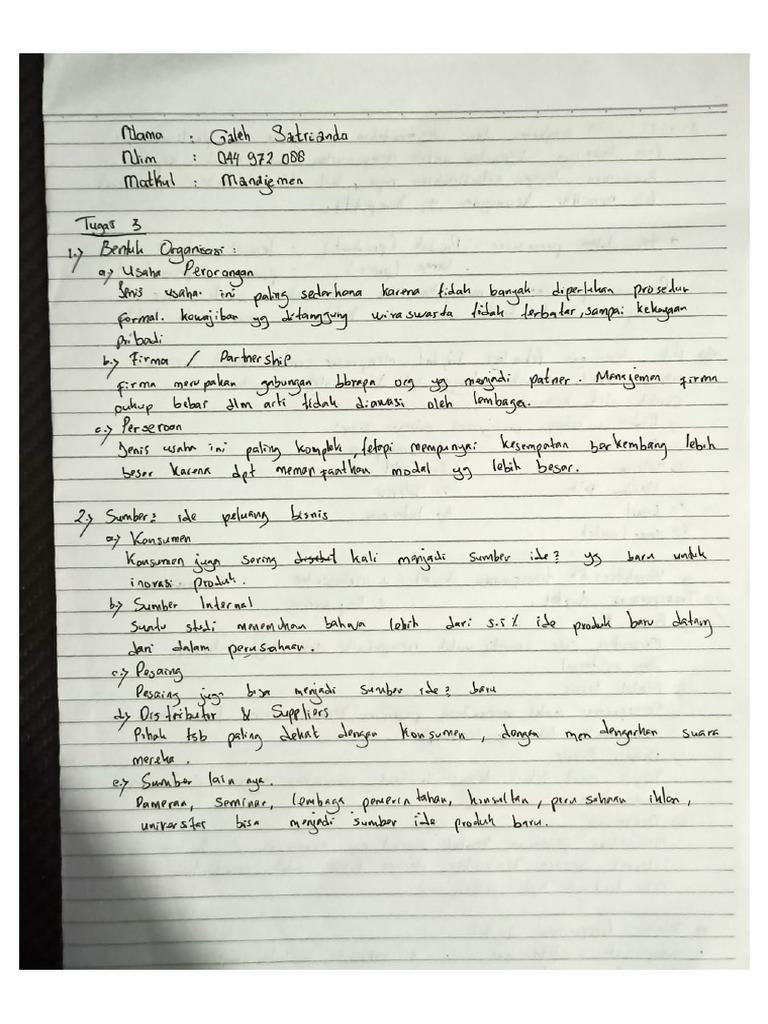 Nama : Galeh Satrianda
Nim : 044 972 088
Matkul : Manajemen
Tugas 3
1.) Bentuk Organisasi :
a.) Usaha Perorangan
Jenis usaha ini paling sederhana karena tidak banyak diperlukan prosedur
formal. kewajiban yg ditanggung wiraswasta tidak terbatas, sampai kekayaan
pribadi
b.) Firma / Partnership
firma merupakan gabungan bbrapa org yg menjadi patner. Manajemen firma
cukup bebas dlm arti tidak diawasi oleh lembaga.
c.) Perseroan
Jenis usaha ini paling komplek, tetapi mempunyai kesempatan berkembang lebih
besar karena dpt memanfaatkan modal yg lebih besar.
2.) Sumber2 ide peluang bisnis
a.) Konsumen
Konsumen juga sering kali menjadi sumber ide2 yg baru untuk
inovasi produk.
b.) Sumber Internal
Suatu studi menemukan bahwa lebih dari 5.5% ide produk baru datang
dari dalam perusahaan.
c.) Pesaing
Pesaing juga bisa menjadi sumber ide2 baru
d.) Distributor & Suppliers
Pihak tsb paling dekat dengan konsumen, dengan mendengarkan suara
mereka.
e.) Sumber lain nya.
Pameran, seminar, lembaga pemerintahan, konsultan, perusahaan iklan,
universitas bisa menjadi sumber ide produk baru.